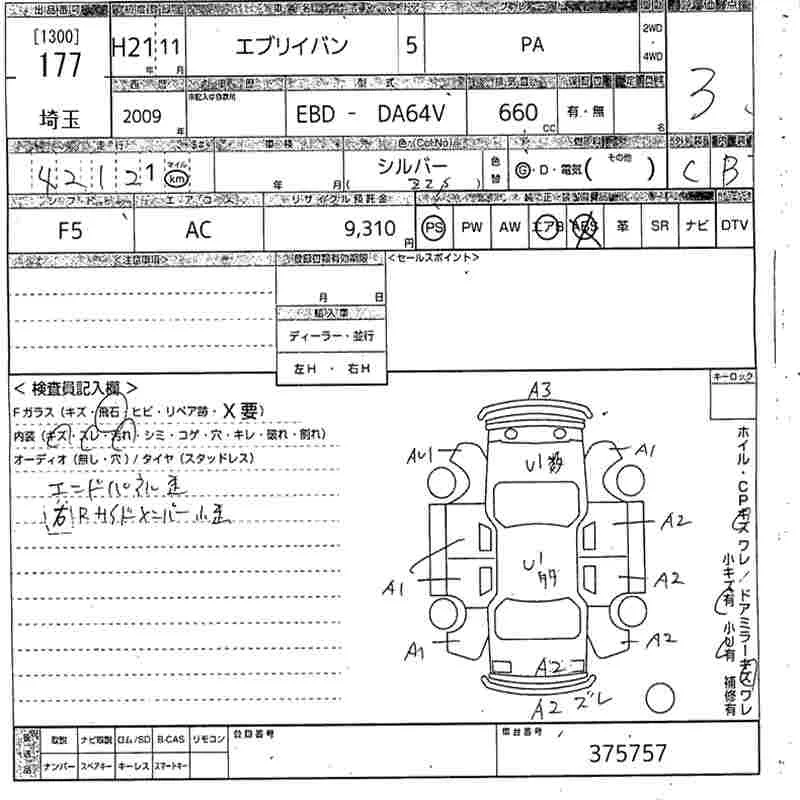 出品番号
[1300]
177
埼玉
H21 11
年 月
エブリイバン
5
PA
2WD
・
4WD
3
2009
年
型式
EBD - DA64V
排気量
660
cc
有・無
名
走行
42121
マイル
km
車検
年 月
色(ColNo)
シルバー
(Z2S)
色替
燃料
G・D・電気( その他 )
C
B
シフト
F5
エアコン
AC
リサイクル預託金
9,310
円
PS PW AW エアB ABS 革 SR ナビ DTV
<注意事項>
登録書類有効期限
月 日
輸入車
ディーラー・並行
左H ・ 右H
<セールスポイント>
<検査員記入欄>
キーロック
Fガラス(キズ・飛石・ヒビ・リペア跡・X要)
内装(キズ・スレ・汚れ・シミ・コゲ・穴・キレ・破れ・割れ)
オーディオ(無し・穴)/タイヤ(スタッドレス)
エンドパネル歪
右Rサイドメンバー小歪
A3
AU1
A1
U1数
A2
A1
U1
多
A2
A1
A2
A2
A2 ズレ
ホイル・CPキズ ワレ/ドアミラーキズ ワレ
小キズ有 小U有 補修有
取説 ナビ取説 ロム/SD B-CAS リモコン
ナンバー スペアキー キーレス スマートキー
登録番号
車台番号
375757